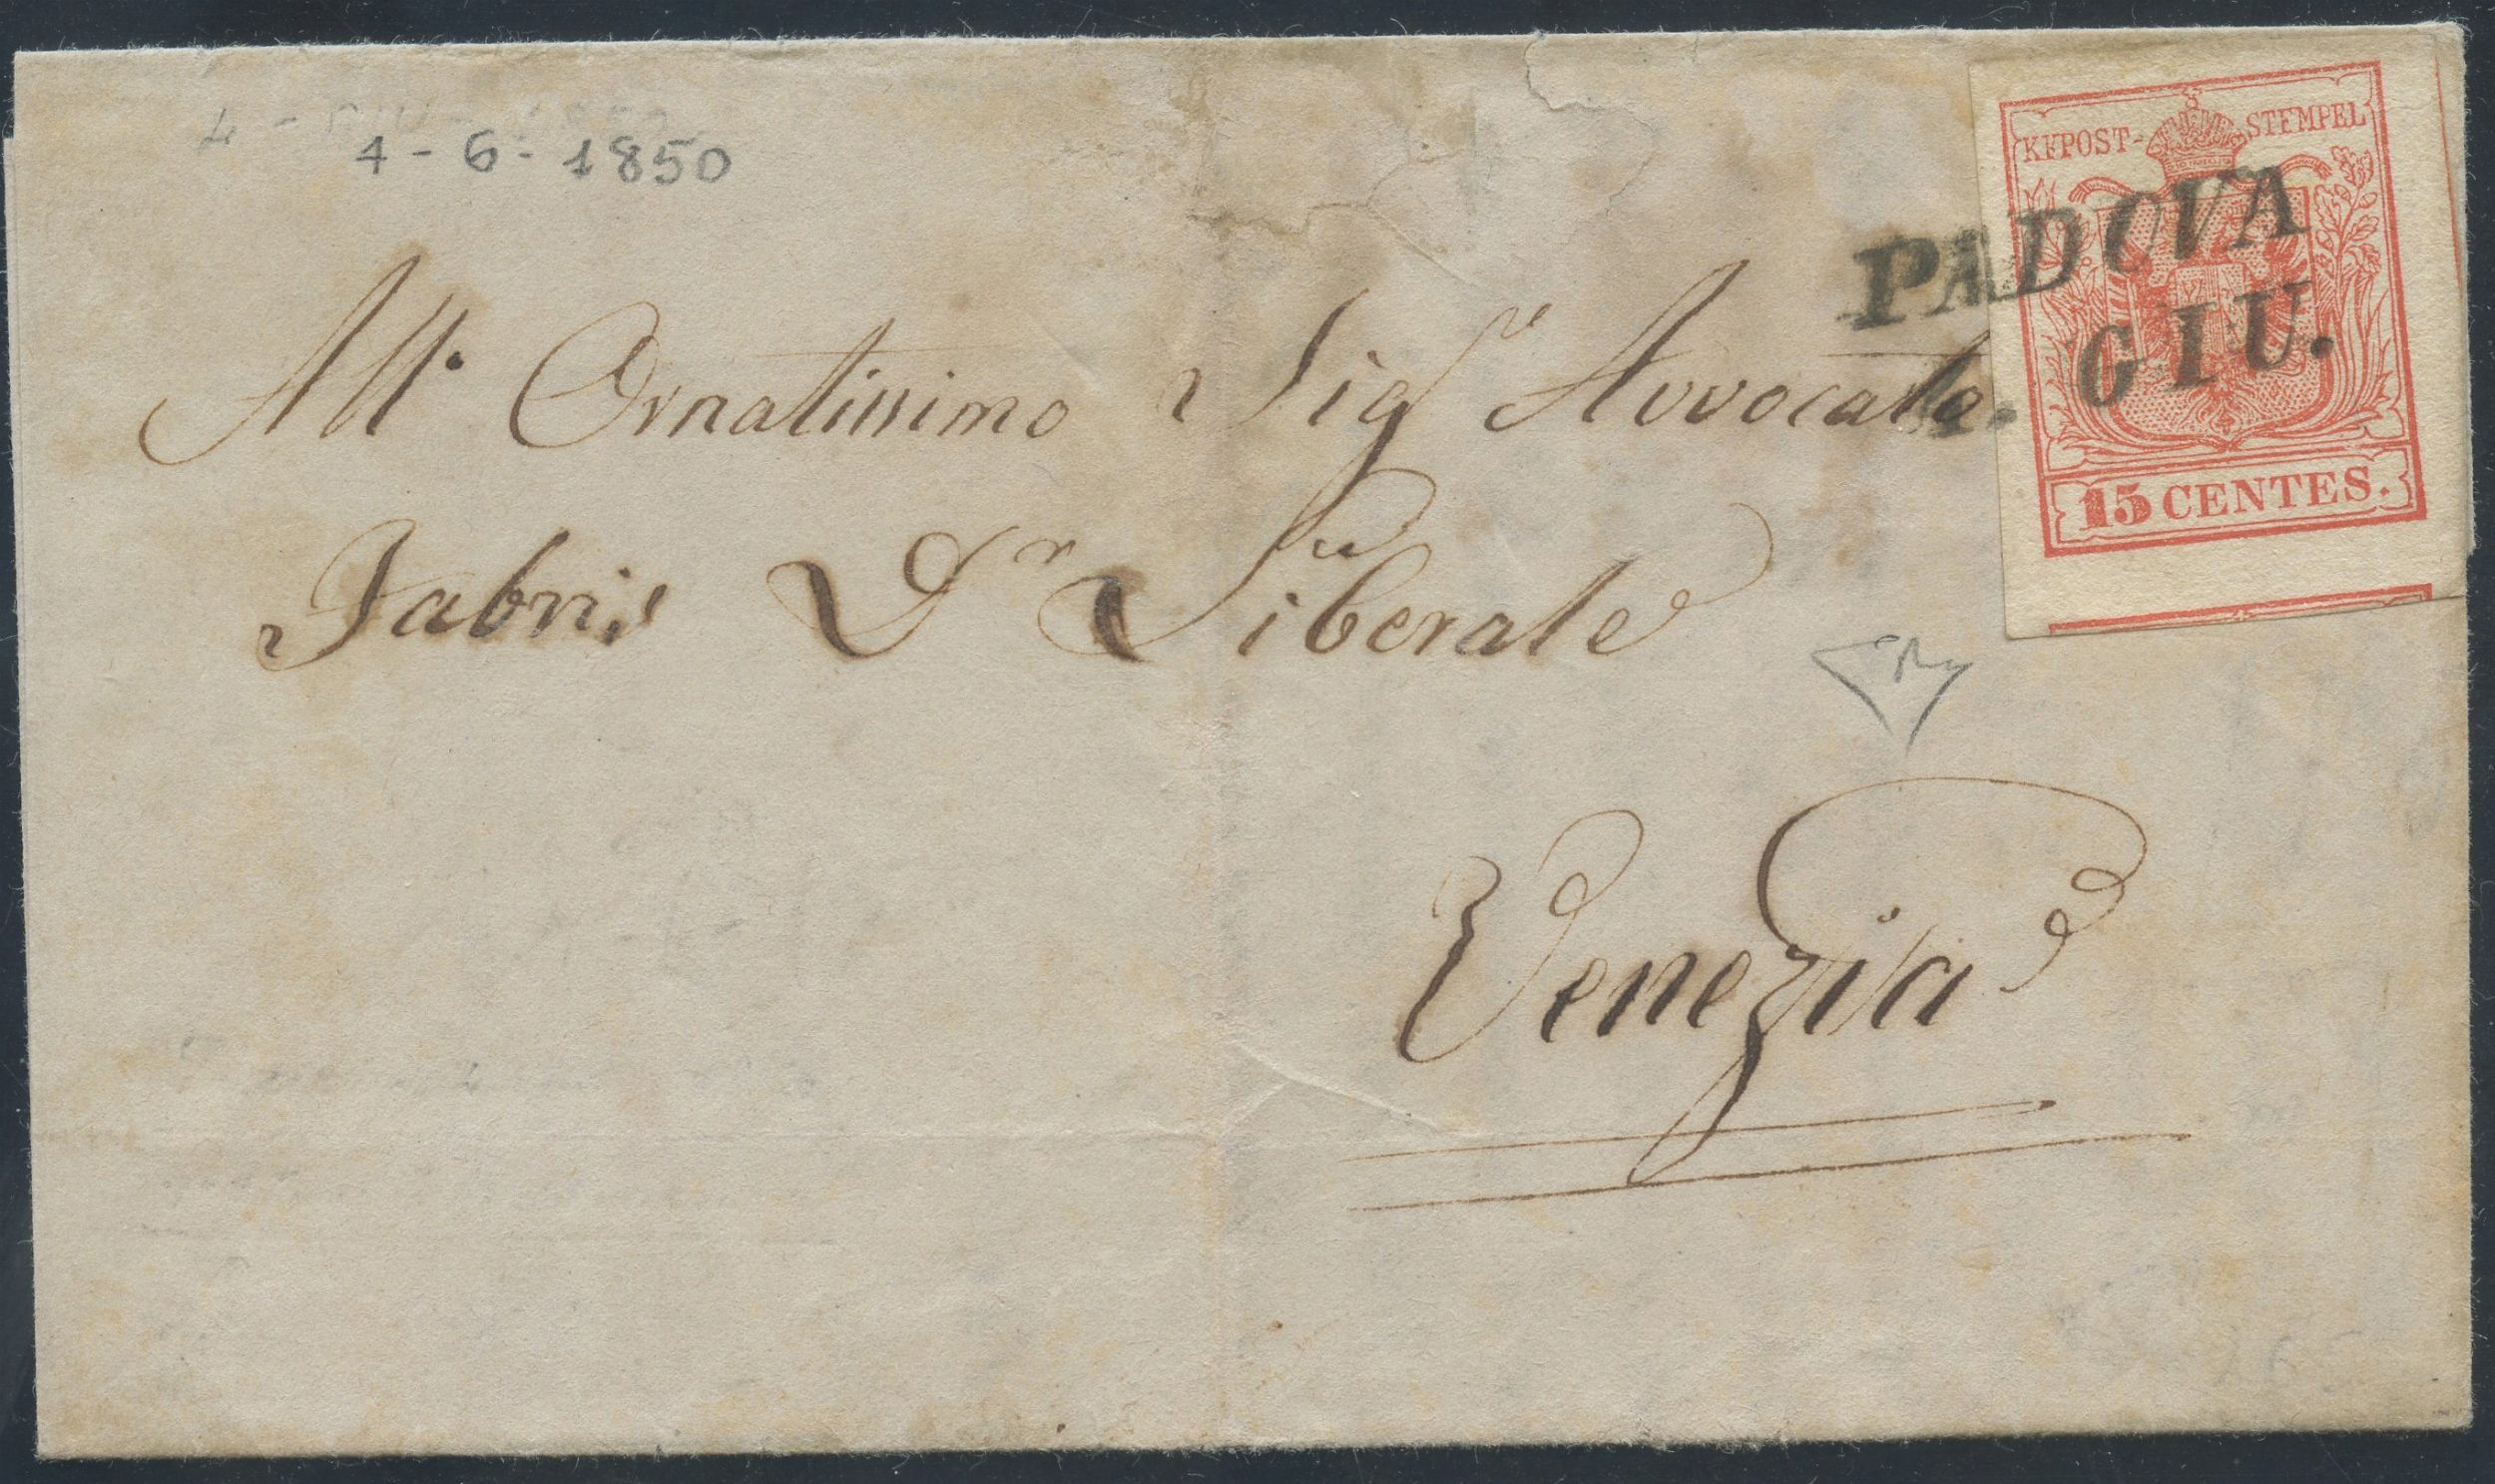 4-6-1850
KKPOST-STEMPEL
PADOVA
4. GIU.
15 CENTES.
All' Ornatissimo Sigr Avvocato
Fabris Dr Liberale
Venezia